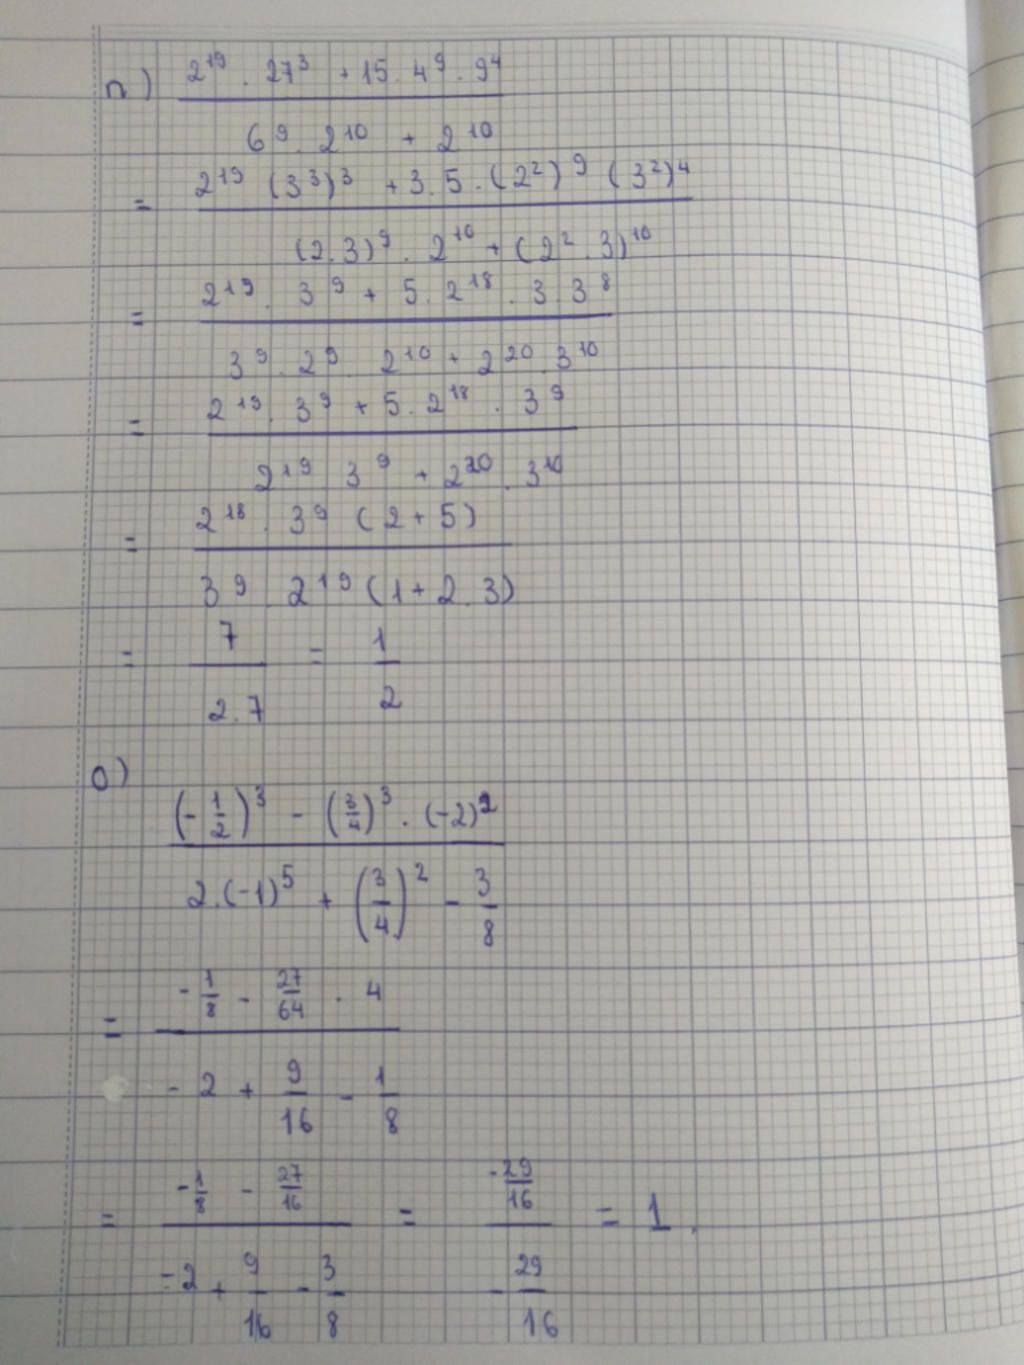 n) (2^19 . 27^3 + 15 . 4^9 . 9^4) / (6^9 . 2^10 + 2^10)
= (2^19 (3^3)^3 + 3.5.(2^2)^9 (3^2)^4) / ((2.3)^9 . 2^10 + (2^2 . 3)^10)
= (2^19 . 3^9 + 5.2^18 . 3.3^8) / (3^9 . 2^9 . 2^10 + 2^20 . 3^10)
= (2^19 . 3^9 + 5.2^18 . 3^9) / (2^19 3^9 + 2^20 . 3^10)
= (2^18 . 3^9 (2+5)) / (3^9 . 2^19 (1+2.3))
= 7 / (2.7) = 1/2
o)
((-1/2)^3 - (3/4)^3 . (-2)^2) / (2.(-1)^5 + (3/4)^2 - 3/8)
= (-1/8 - 27/64 . 4) / (-2 + 9/16 - 1/8)
= (-1/8 - 27/16) / (-2 + 9/16 - 3/8) = (-29/16) / (-29/16) = 1.